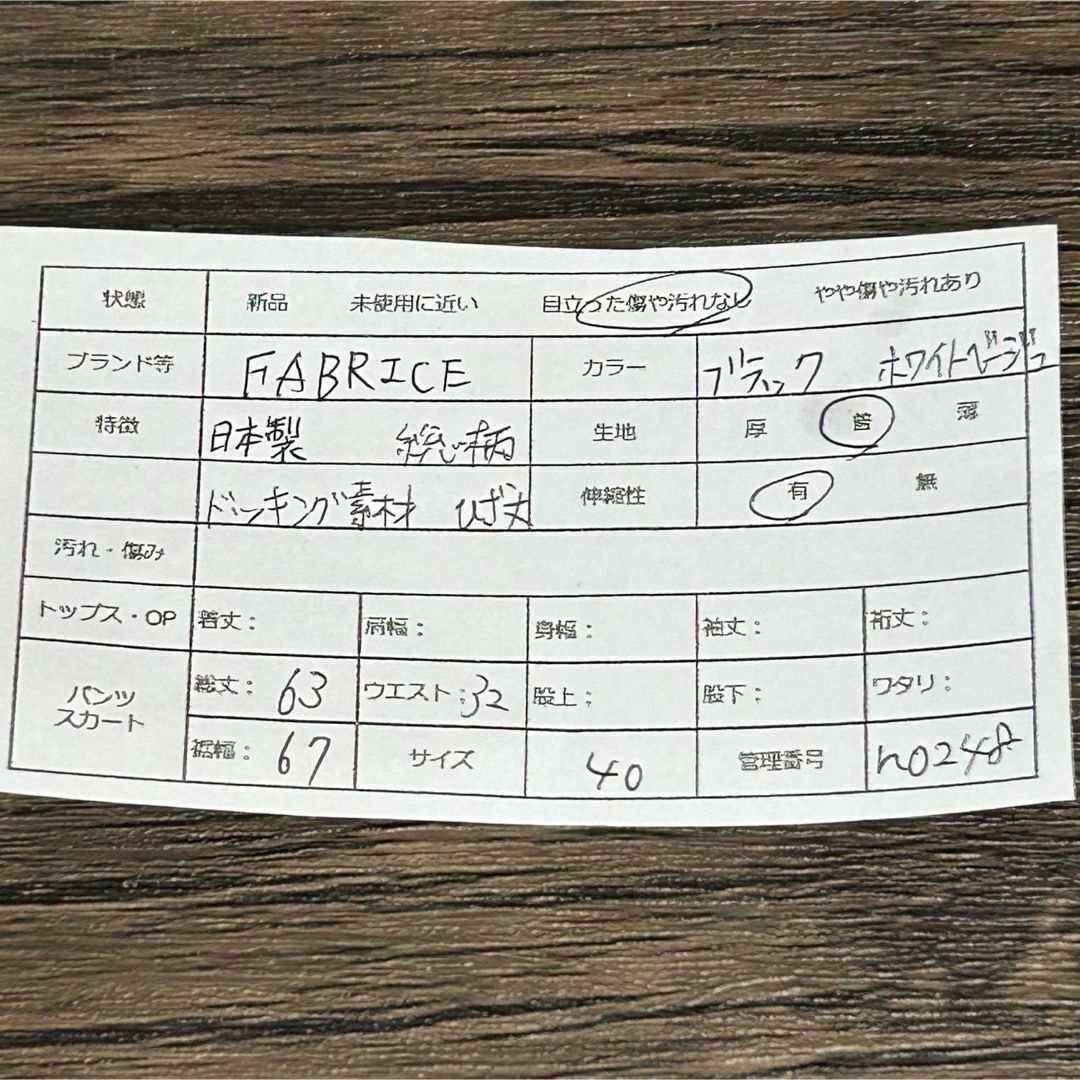 状態 新品 未使用に近い 目立った傷や汚れなし やや傷や汚れあり
ブランド等 FABRICE カラー ブラック ホワイトベージュ
特徴 日本製 総柄 生地 厚 普 薄
ドッキング素材 ひざ丈 伸縮性 有 無
汚れ・傷み
トップス・OP 着丈: 肩幅: 身幅: 袖丈: 裄丈:
パンツ スカート 総丈: 63 ウエスト: 32 股上: 股下: ワタリ:
裾幅: 67 サイズ 40 管理番号 n0248